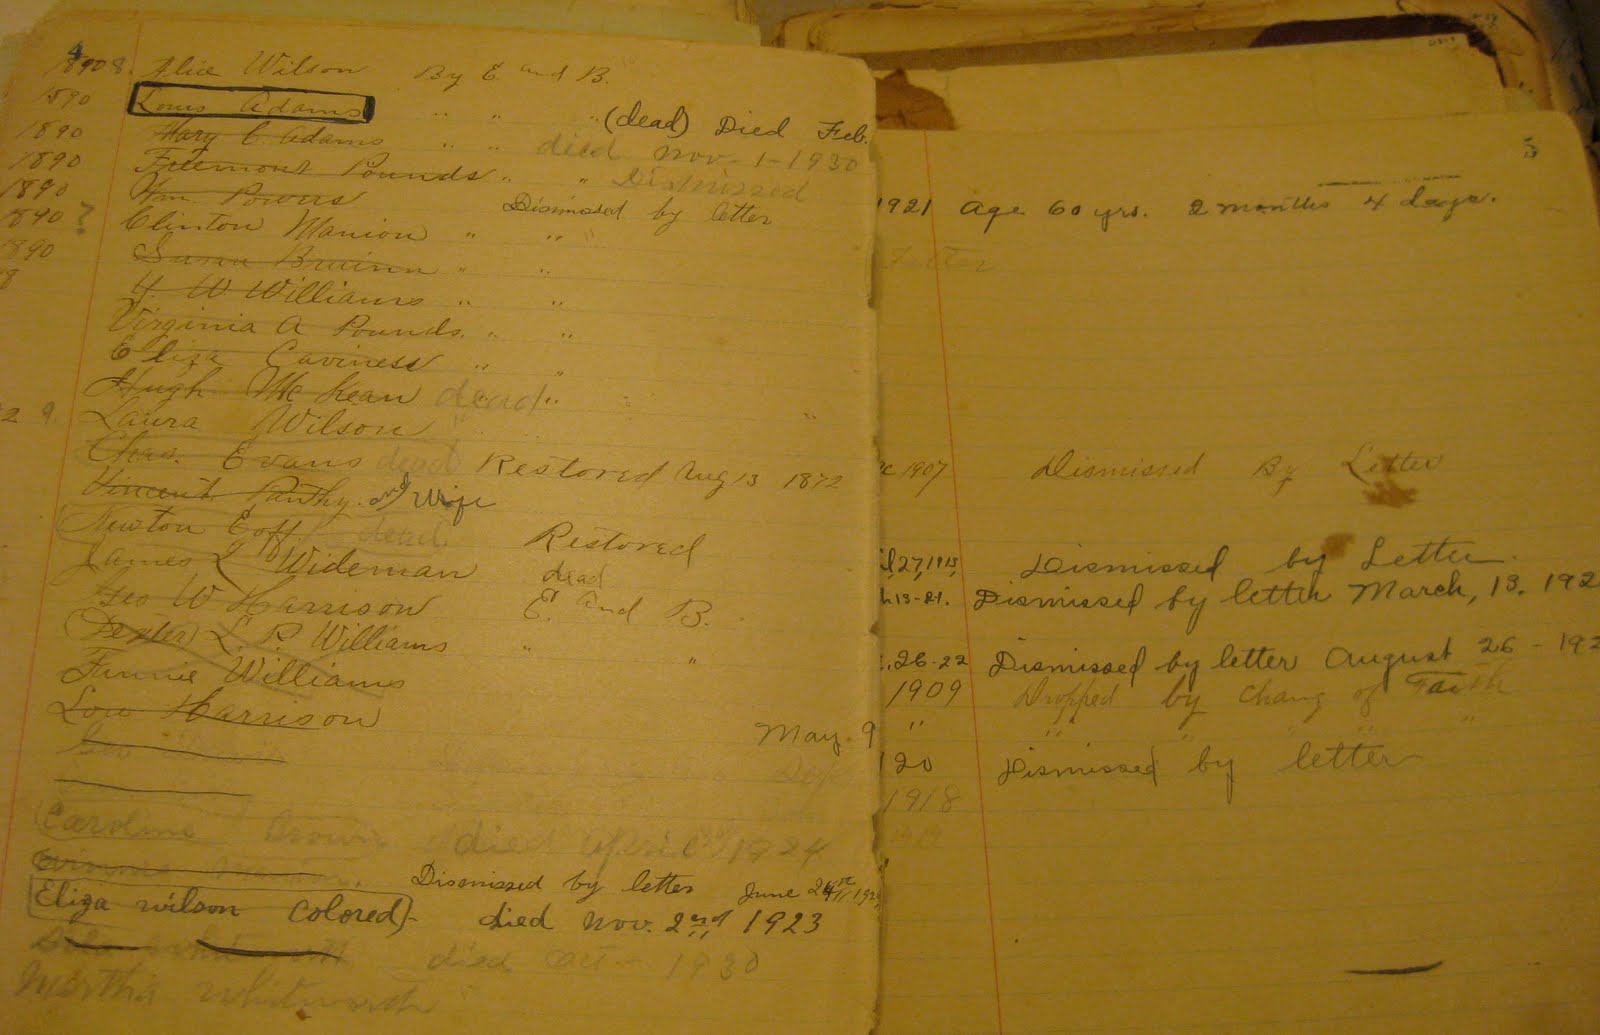 1890 8. Alice Wilson By E. and B.
1890 Louis Adams " " " (dead) Died Feb.
1890 Mary C. Adams " " died Nov-1-1930
1890 Freemont Pounds " " Dismissed
1890 Wm. Powers Dismissed by letter
1890 ? Clinton Manion " "
1890 Susan " "
8 W. Williams " "
Virginia A Pounds. " "
Eliza Caviness " "
Hugh McKean dead " "
2 9. Laura Wilson " "
Chas. Evans dead Restored Aug 13 1872
Vincent and Wife
Newton Eoff dead. Restored
James L Wideman dead
Geo W Harrison E. and B.
(Dexter) L. P. Williams " "
Fannie Williams
Low Harrison
May. 9
Geo
Caroline Brown died April 1924
Manion. Dismissed by letter June 24
Eliza wilson Colored)- died Nov. 2nd 1923
died Oct - 1930
Martha Whitworth
3
1921 Age 60 yrs. 2 months 4 days.
Letter
1907 Dismissed By Letter
27, 1915, Dismissed by Letter.
13-21. Dismissed by letter March, 13, 192
26-22 Dismissed by letter August 26 - 192
1909 Dropped by Chang of Faith
" " " " " "
20 Dismissed by letter
1918
1919